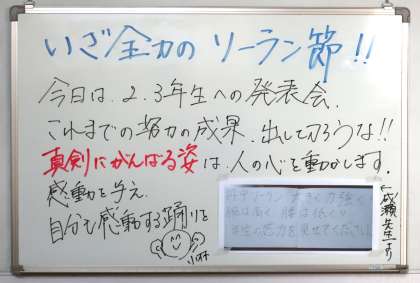 いざ全力のソーラン節!!
今日は、2、3年生への発表会、
これまでの努力の成果、出し切ろうな!!
真剣にがんばる姿は、人の心を動かします。
感動を与え、
自分も感動する踊りを
←成瀬先生より
ソーラン 大きく力強く
腕は高く 腰は低く
年生の底力を見せてください